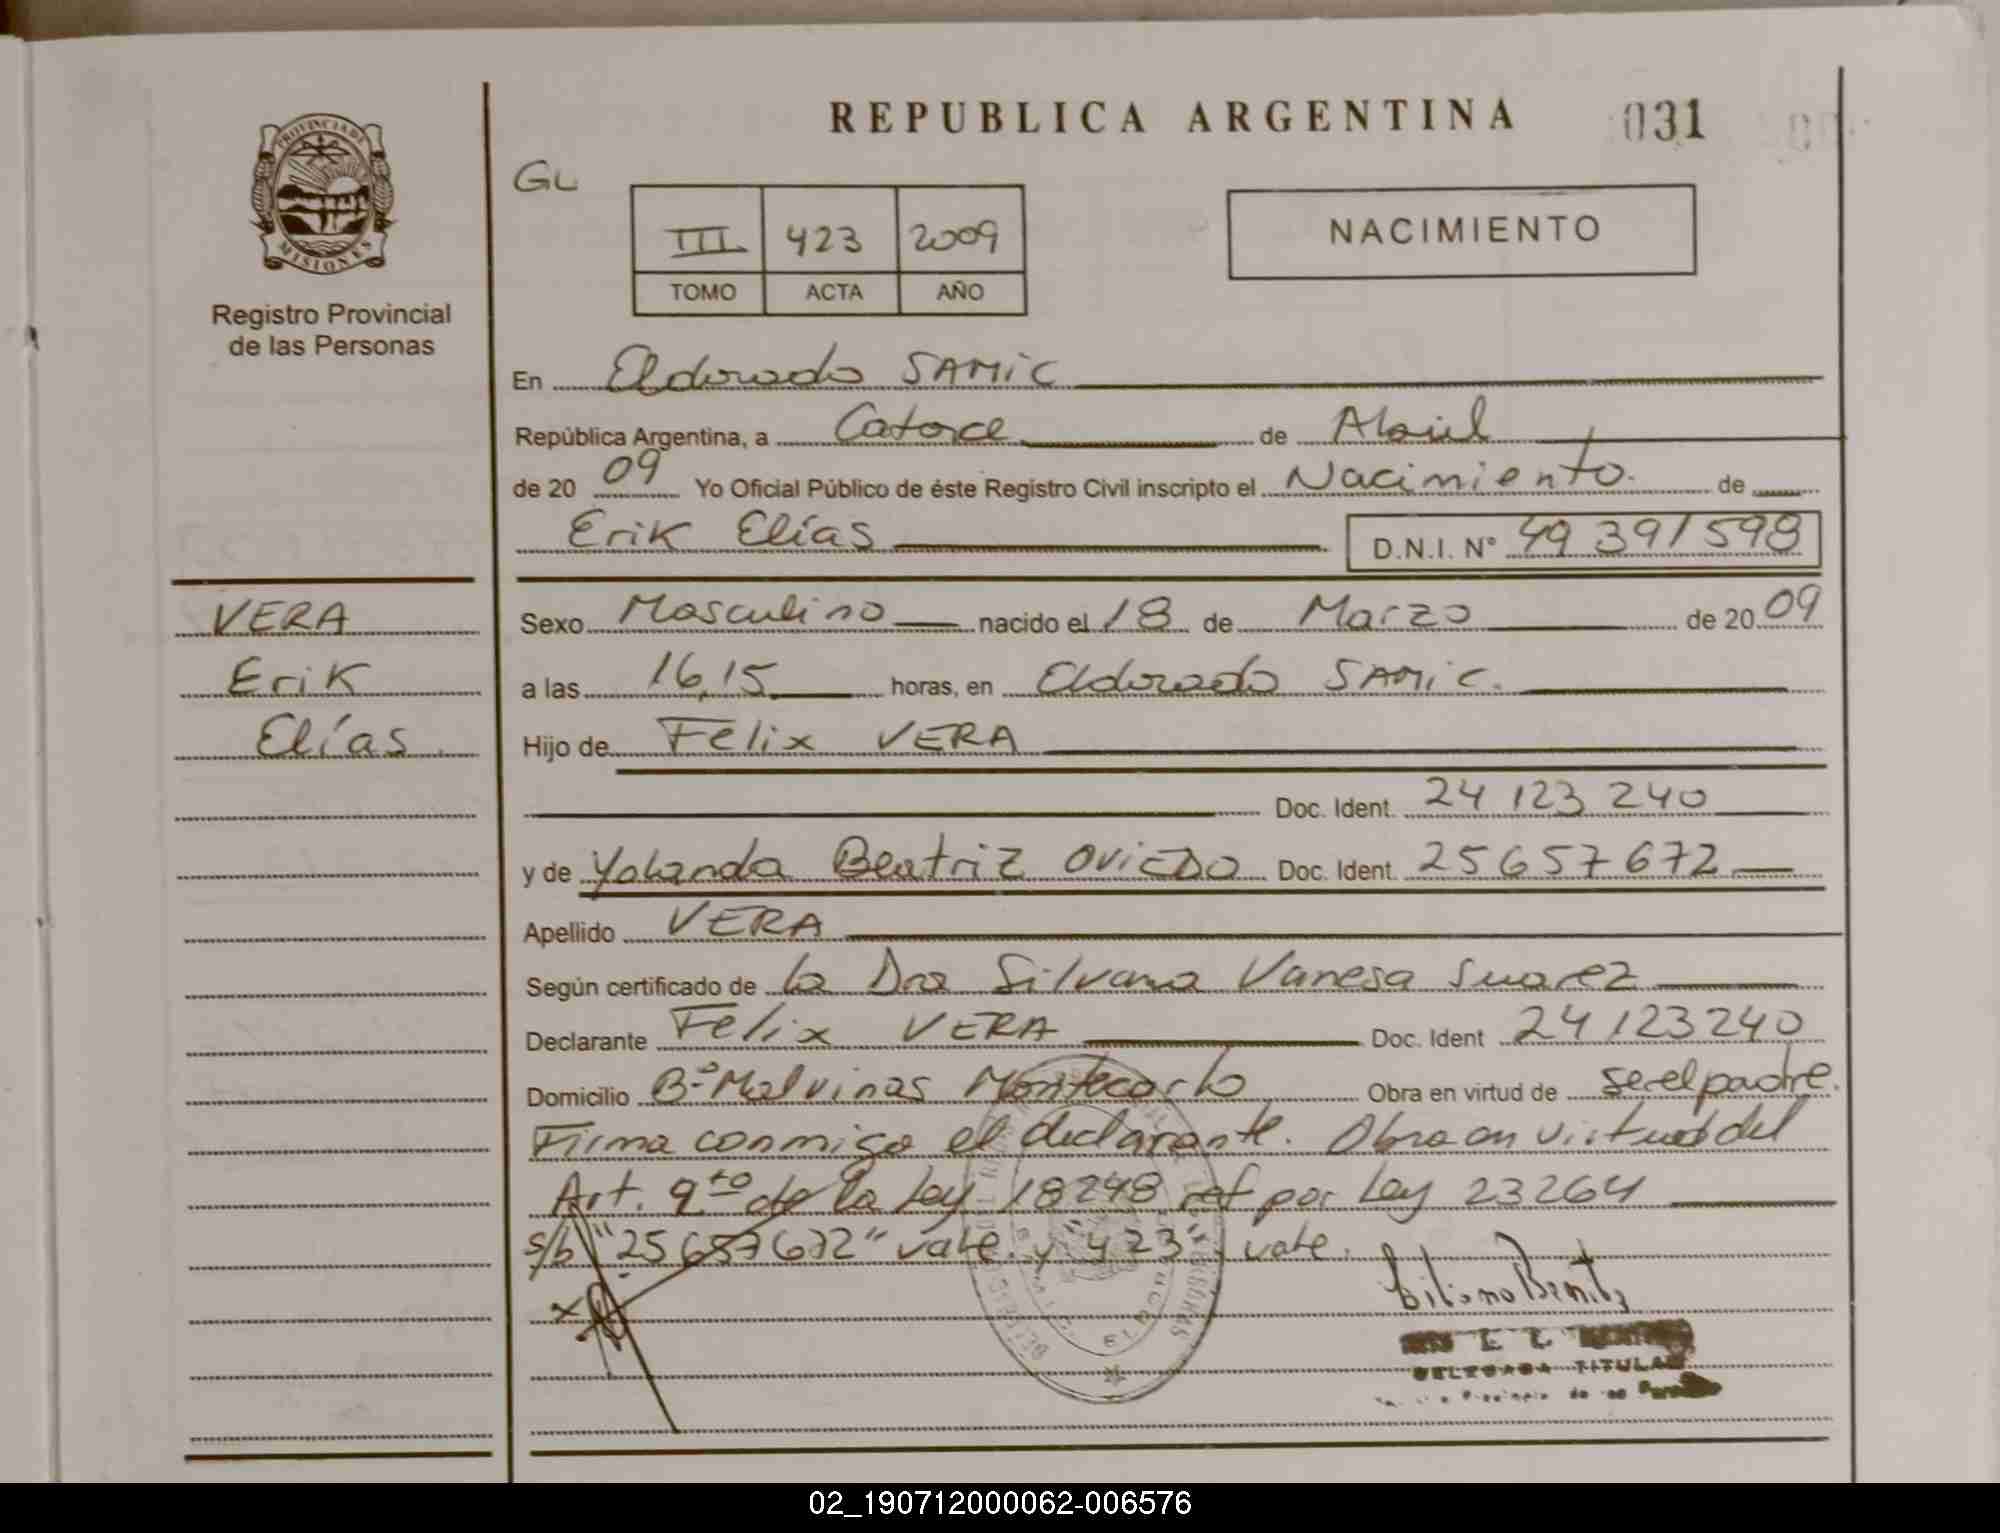 REPUBLICA ARGENTINA
031
PROVINCIA DE
MISIONES
Registro Provincial
de las Personas
GL
III 423 2009
TOMO ACTA AÑO
NACIMIENTO
En Eldorado SAMIC
República Argentina, a Catorce de Abril
de 2009 Yo Oficial Público de éste Registro Civil inscripto el Nacimiento. de
Erik Elías D.N.I. Nº 49 391 598
VERA
Erik
Elías
Sexo Masculino nacido el 18 de Marzo de 2009
a las 16,15 horas, en Eldorado SAMIC.
Hijo de Felix VERA
Doc. Ident. 24 123 240
y de Yolanda Beatriz OVIEDO Doc. Ident. 25657672
Apellido VERA
Según certificado de la Dra Silvana Vanesa Suarez
Declarante Felix VERA Doc. Ident 24123240
Domicilio Bº Malvinas Montecarlo Obra en virtud de ser el padre.
Firma conmigo el declarante. Obra en virtud del
Art. 9to de la Ley 18248 ref por Ley 23264
s/b "25657672" vale y "423" vale.
DELEGADA TITULAR
02_190712000062-006576